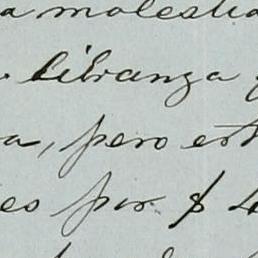 a molestia
libranza
a, pero est
eo por $ 4